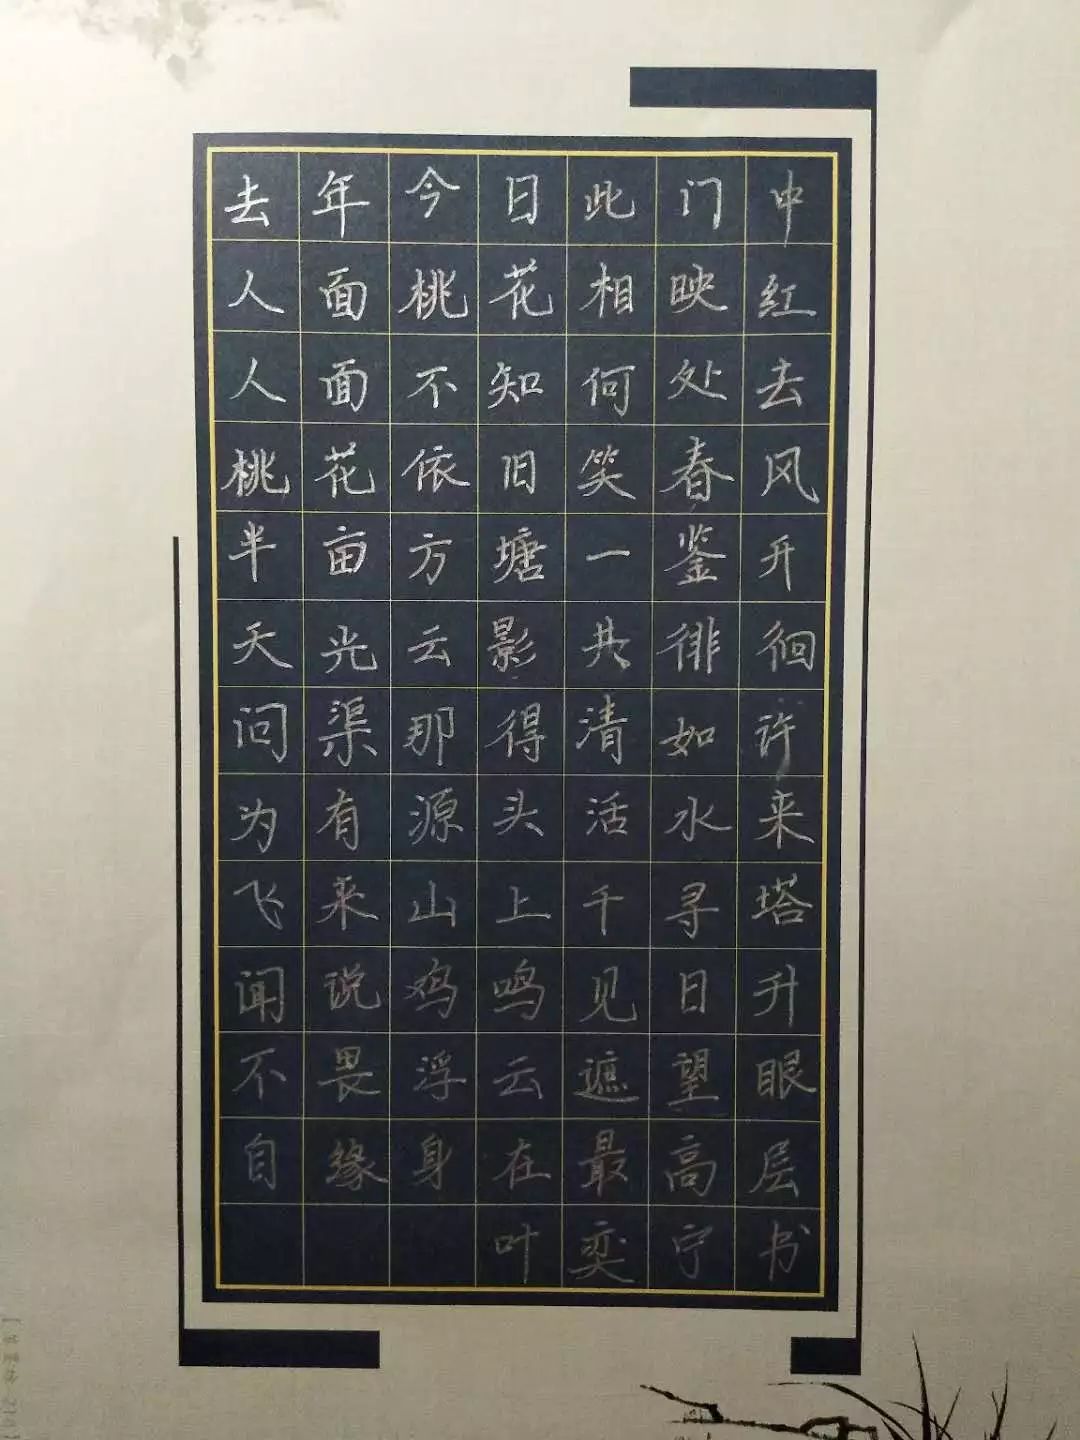 去年今日此门中
人面桃花相映红
人面不知何处去
桃花依旧笑春风
半亩方塘一鉴开
天光云影共徘徊
问渠那得清如许
为有源头活水来
飞来山上千寻塔
闻说鸡鸣见日升
不畏浮云遮望眼
自缘身在最高层
叶奕宁书